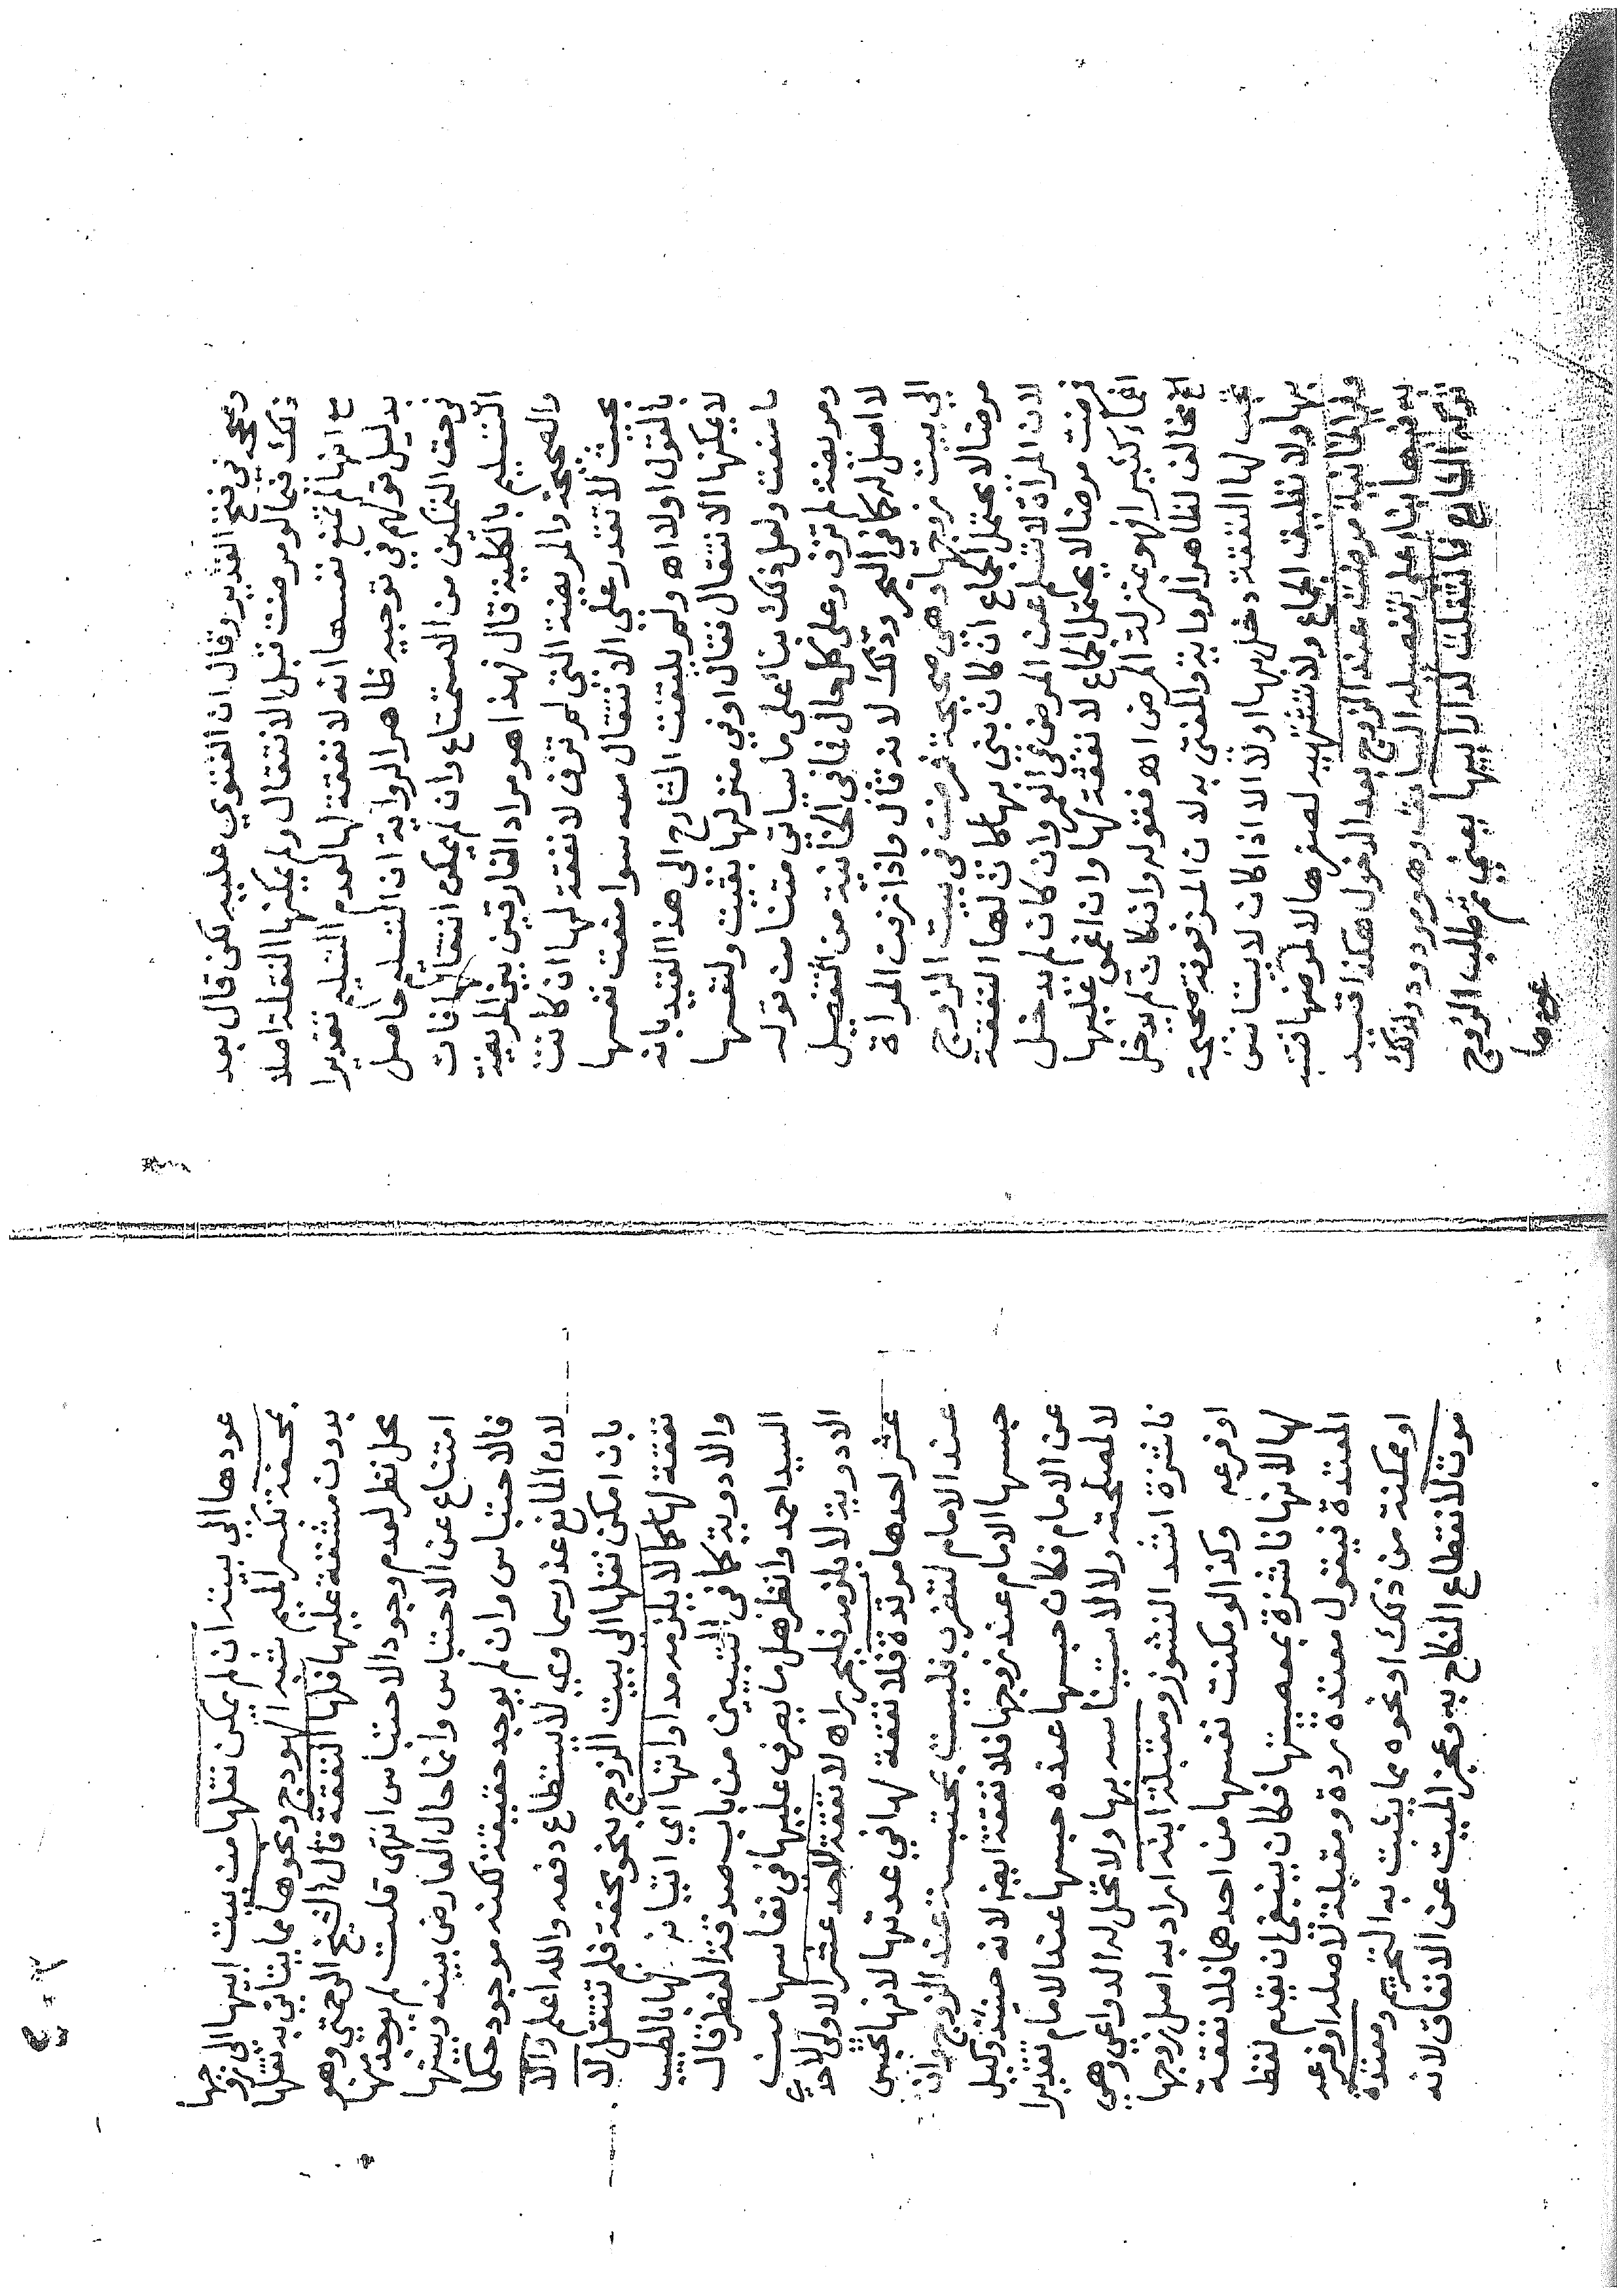 وصححه في فتح القدير وقال ان الفتوي عليه لكن قال بعد
ذلك فيما لو مرضت قبل الانتقال ولم يمكنها النقلة اصلا
مع انها لم تمنع نفسها انه لا نفقة لها لعدم التسليم تقديرا
بدليل قولهم في توجيه ظاهر الرواية ان التسليم حاصل
في حق التمكين من الاستمتاع وان لم يمكن انتقالها فات
التسليم بالكلية قال فهذا هو مراد الفارقين بين المريضة
والصحيحة والمريضة التي لم تزف لا نفقة لها ان كانت
بحيث لا تقدر على الانتقال معه سوا منعت نفسها
بالقول اولا اه ولم يلتفت الشارح الى هذا القيد بانه
لا يمكنها الانتقال فقال او في منزلها بقيت ولنفسها
ما منعت ولعل ذلك بنا على ما سياتي متنا من قوله
ومريضة لم تزف وعلى كل حال فما في الخانية من التفصيل
لا اصل له كما في البحر وذلك لانه قال واذا زفت المراة
الى بيت زوجها وهي صحيحة ثم مرضت في بيت الزوج
مرضا لا يحتمل الجماع ان كان بنى بها كان لها النفقة
لان المراة لا تسلم عن المرض في العمر وان كان لم يدخل
فمرضت مرضا لا يحتمل الجماع لا نفقة لها وان اغمي عليها
اغماء كثيرا فهو بمنزلة المرض اه فقوله وان كان لم يدخل
الخ مخالف لظاهر الرواية والمفتى به لان المزفوفة صحيحة
تجب لها النفقة دخل بها اولا الا اذا كان لا يستانس
بها ولا تطيق الجماع ولا تشتهيه لصغرها لا لمرضها فتنبه
وفي الخانية مرضت عند الزوج بعد الدخول هكذا قيد
به فيها بناء على تفصيله السابق وهو مردود ولذلك
تركه الشارح فانتقلت لدار ابيها يعني ثم طلب الزوج
عودها
عودها الى بيته ان لم يمكن نقلها من بيت ابيها الى زوجها
بمحفة بكسر الميم شبه الهودج ونحوها مما يتاتى به نقلها
بدون مشقة عليها فلها النفقة قال الشيخ الرحمتي وهو
محل نظر لعدم وجود الاحتباس انتهى قلت لم يوجد منها
امتناع عن الاحتباس وانما حال العارض بينه وبينها
فالاحتباس وان لم يوجد حقيقة لكنه موجود حكما
لان المانع عذر سماوي لا يستطاع دفعه والله اعلم والا
بان امكن نقلها الى بيت الزوج بنحو محفة فلم تنتقل لا
نفقة لها كما لا يلزمه مداواتها اي اتيانه لها بالطبيب
والادوية كما في التبيين من باب صدقة الفطر قال
السيد احمد وانظر هل ما يصرف عليها في نفاسها من
الادوية لا يلزمه فليحرر اه لا نفقة لاحد عشر الاولى لاحدي
عشر احدها مرتدة فلا نفقة لها في عدتها لانها تحبس
عند الامام لتقرب فليست بمحتبسة عند الزوج وان
حبسها الامام عند زوجها فلا نفقة ايضا لانه حينئذ وكيل
عن الامام فكان حبسها عنده حبسها عند الامام تقديرا
لا لمصلحة ولا لاستيناسه بها ولا تحل له الدواعي وهي
ناشزة اشد النشوز ومقبلة ابنه اراد به اصل زوجها
او فرعه وكذا لو مكنت نفسها من احدهما فلا نفقة
لها لانها ناشزة بمعصيتها فكان ينبغي ان يقدم لفظ
المعتدة فيقول معتدة ردة ومقبلة لاصله او فرعه
او ممكنة من ذلك او نحوه مما يثبت به التحريم ومعتدة
موت لانقطاع النكاح به وعجز الميت عن الانفاق لانه